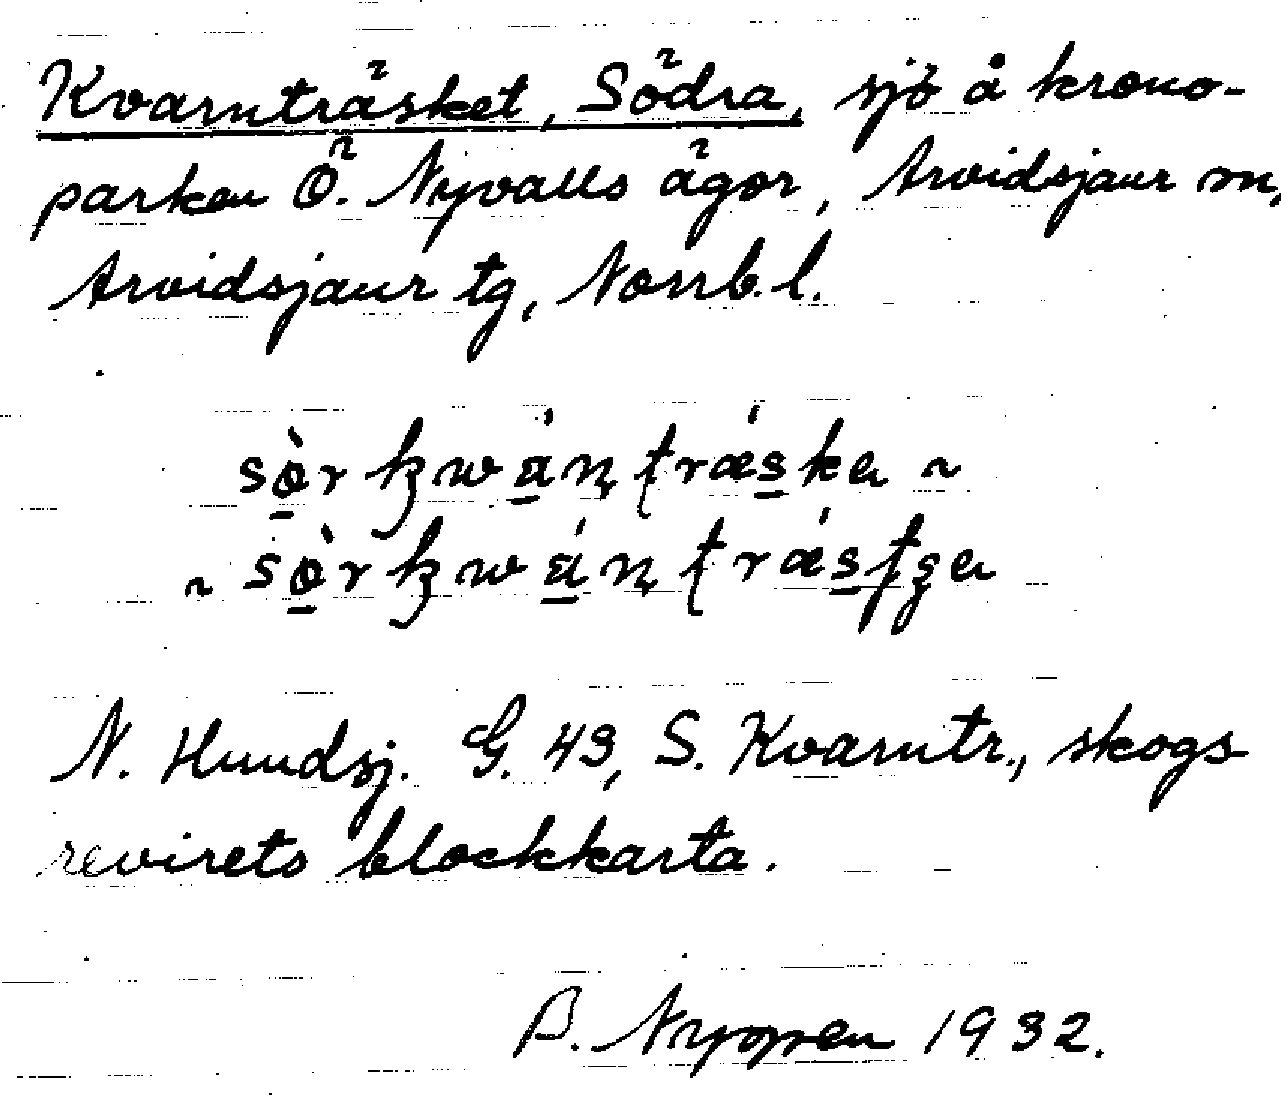 Kvarnträsket, Södra, sjö å krono-
parken Ö. Nyvalls ägor, Arvidsjaur sn,
Arvidsjaur tg, Norrb. l.
sò̠r kwá̠ṇ trǽs̠ken ~
~ sò̠r kwá̠ṇ trǽs̠tʒen
N. Hundsj. G. 43, S. Kvarntr., skogs-
revirets blockkarta.
B. Nyman 1932.